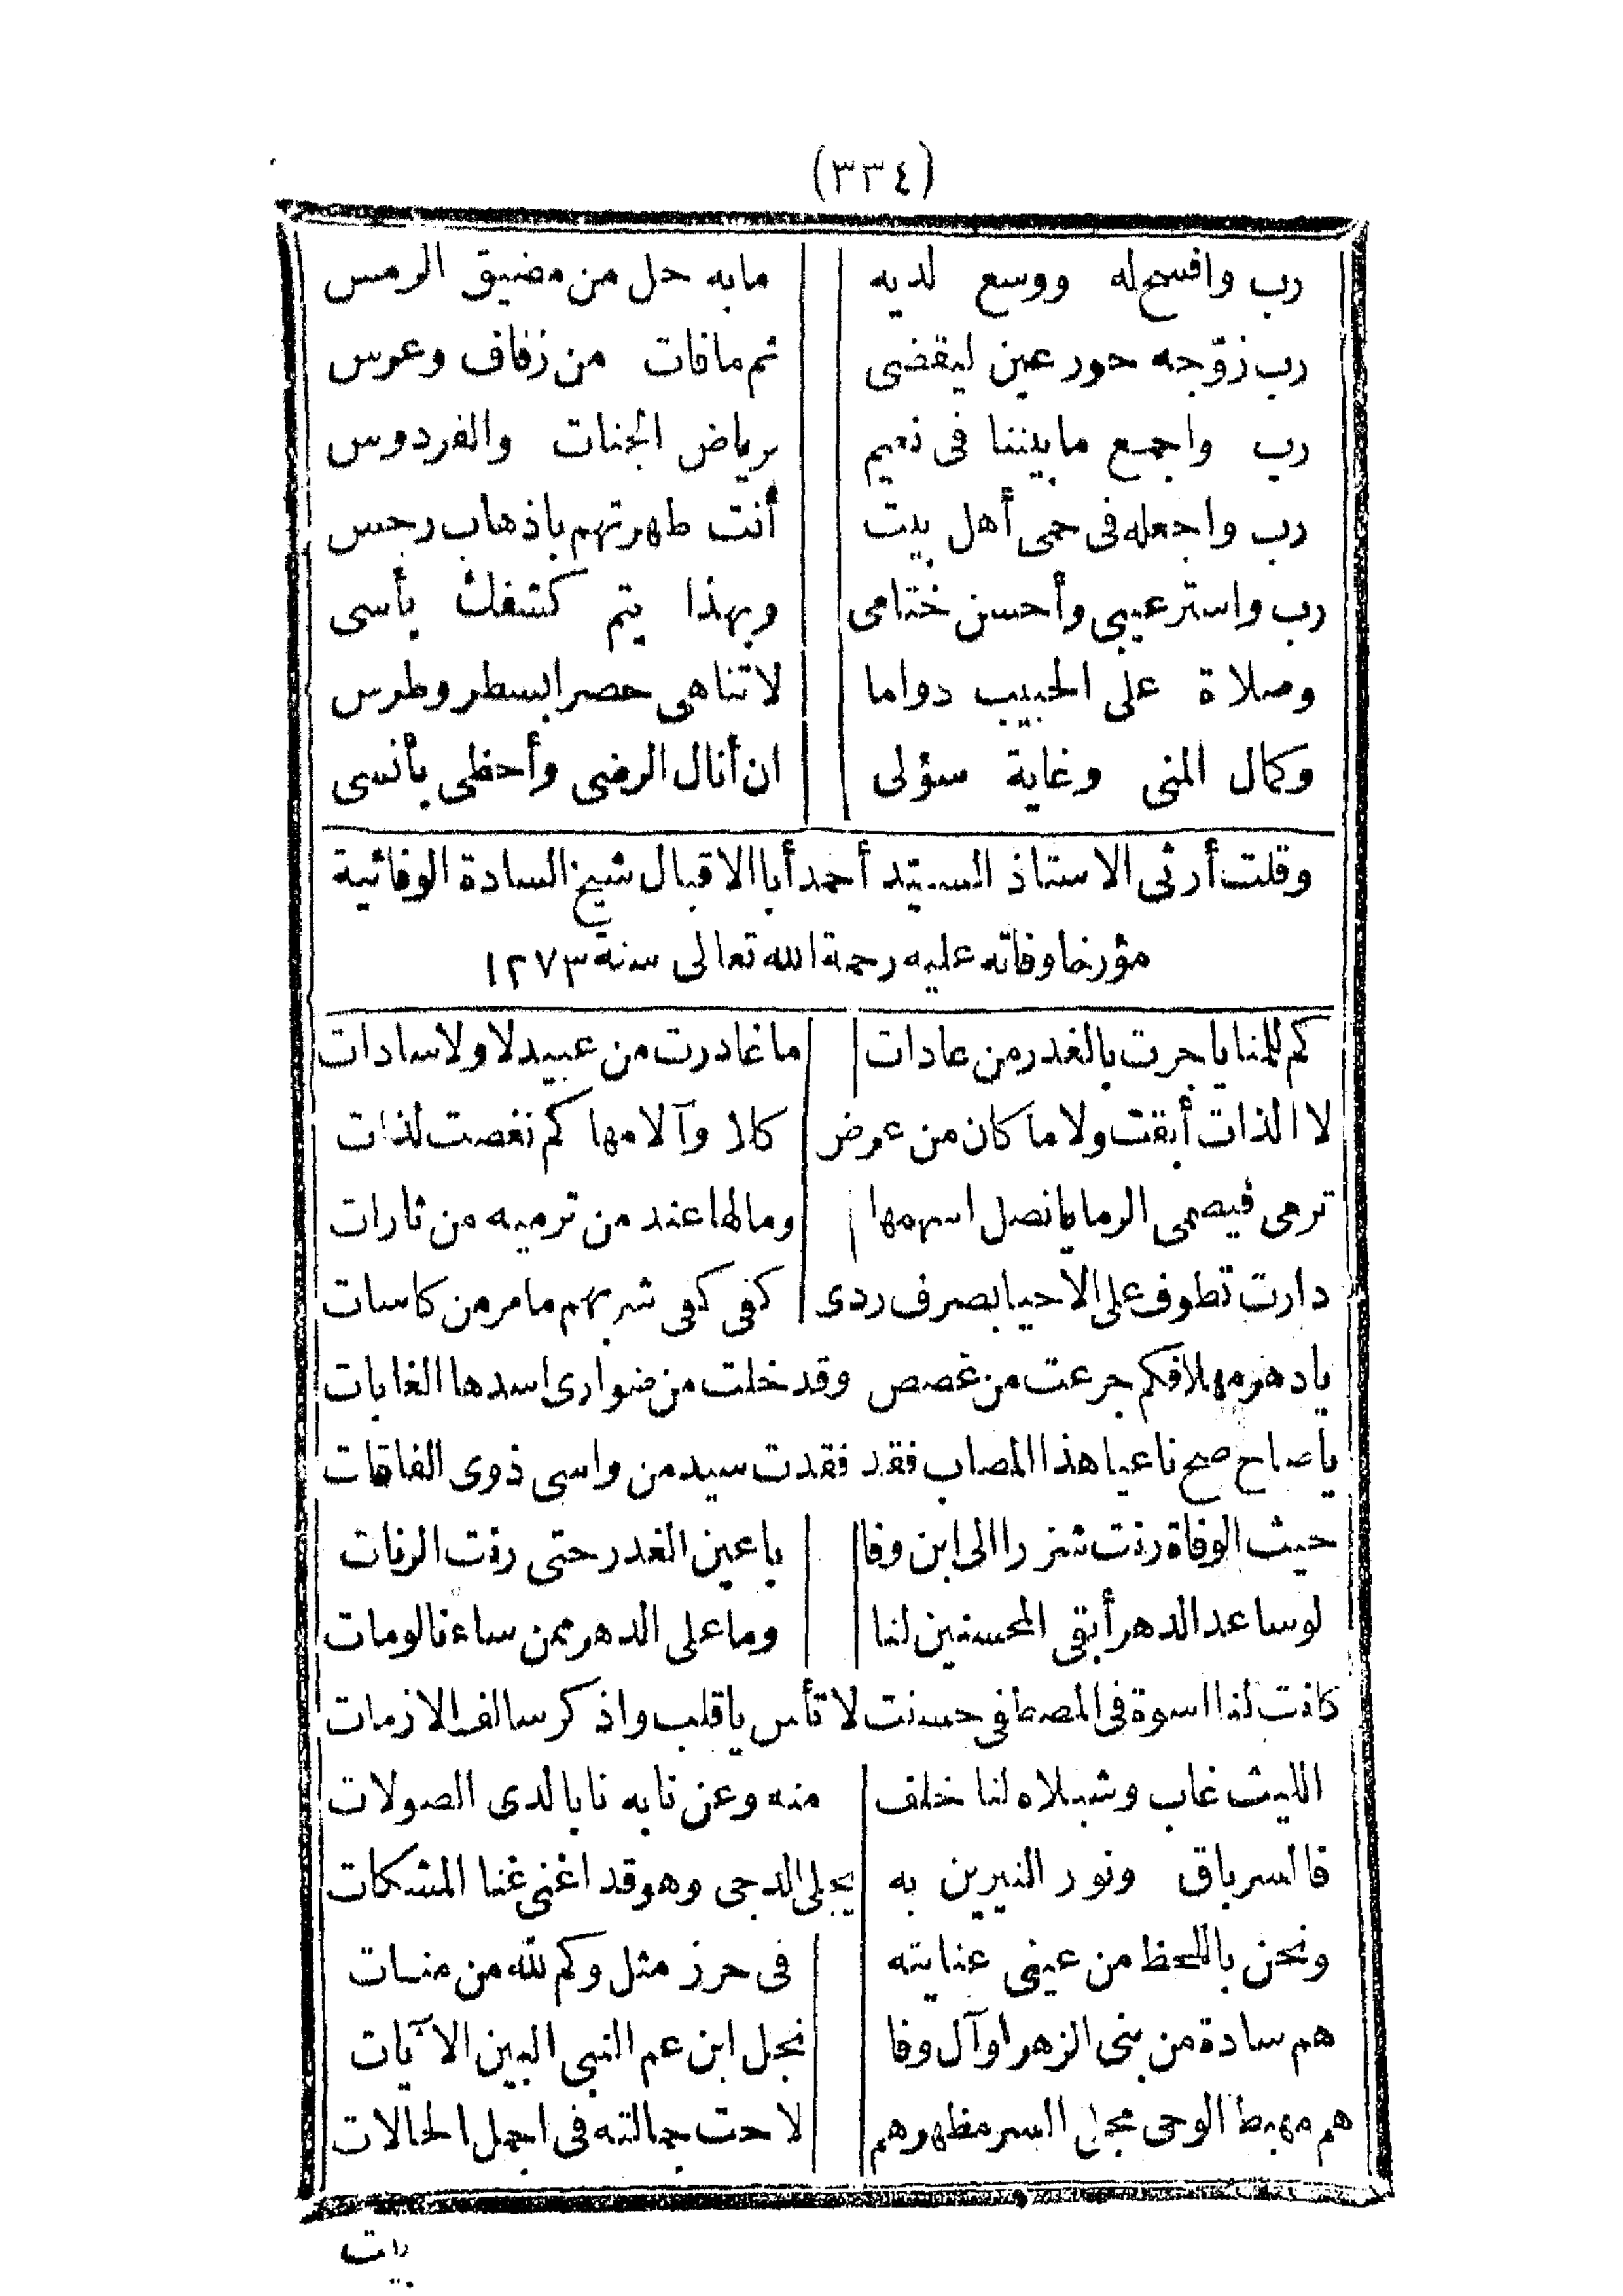 (٣٣٤)
رب وافسح له ووسع لديه مابه حل من مضيق الرمس
رب زوّجه حور عين ليقضى ثم مافات من زفاف وعرس
رب واجمع مابيننا فى نعيم برياض الجنات والفردوس
رب واجعله فى حمى أهل بيت أنت طهرتهم باذهاب رجس
رب واستر عيبى وأحسن ختامى وبهذا يتم كشفك بأسى
وصلاة على الحبيب دواما لاتناهى حصرا بسطر وطرس
وكمال المنى وغاية سؤلى ان أنال الرضى وأحظى بأنسى
وقلت أرثى الاستاذ السيّد أحمد أبا الاقبال شيخ السادة الوفائية
مؤرخا وفاته عليه رحمة الله تعالى سنة ١٢٧٣
كم للمنايا جرت بالغدر من عادات ما غادرت من عبيد لا ولا سادات
لا الذات أبقت ولا ما كان من عرض كلا وآلامها كم نغصت لذات
ترمى فيصمى الرمايا نصل اسهمها ومالها عند من ترميه من ثارات
دارت تطوف على الاحيا بصرف ردى كفى كفى شربهم مامر من كاسات
يادهر مهلا فكم جرعت من غصص وقد خلت من ضوارى اسدها الغابات
ياصاح صح ناعيا هذا المصاب فقد فقدت سيد من واسى ذوى الفاقات
حيث الوفاة رنت شزرا الى ابن وفا ياعين الغدر حتى رنت الرنات
لو ساعد الدهر أبقى المحسنين لنا وما على الدهر ممن ساءنا لومات
كانت لنا اسوة فى المصطفى حسنت لا تأس ياقلب واذكر سالف الازمات
الليث غاب وشبلاه لنا خلف منه وعن نابه نابا لدى الصولات
فالسر باق ونور النيرين به يجلى الدجى وهو قد اغنى غنا المشكات
ونحن باللحظ من عينى عنايته فى حرز مثل وكم لله من منات
هم سادة من بنى الزهرا وآل وفا نجل ابن عم النبى البين الآيات
هم مهبط الوحى مجلى السر مظهرهم لاحت جمالته فى اجمل الحالات
بيت